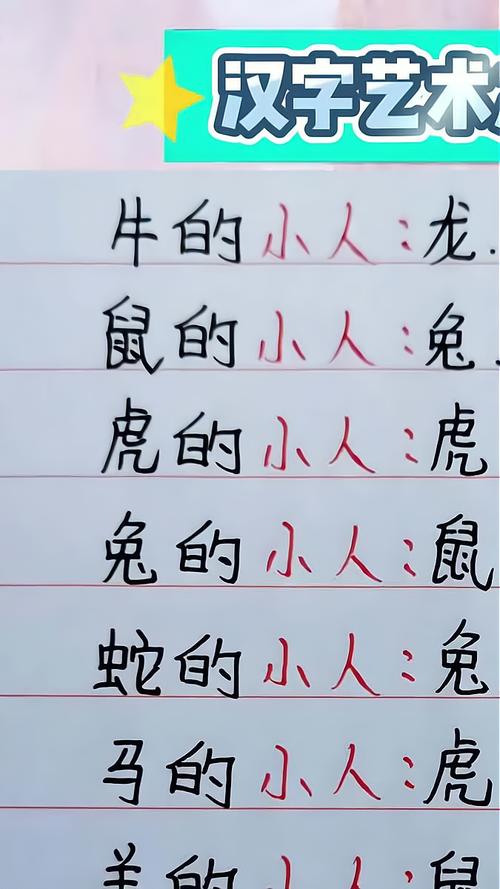 汉字艺术
牛的小人:龙.
鼠的小人:兔.
虎的小人:虎
兔的小人:鼠
蛇的小人:兔
马的小人:虎
羊的小人:鼠